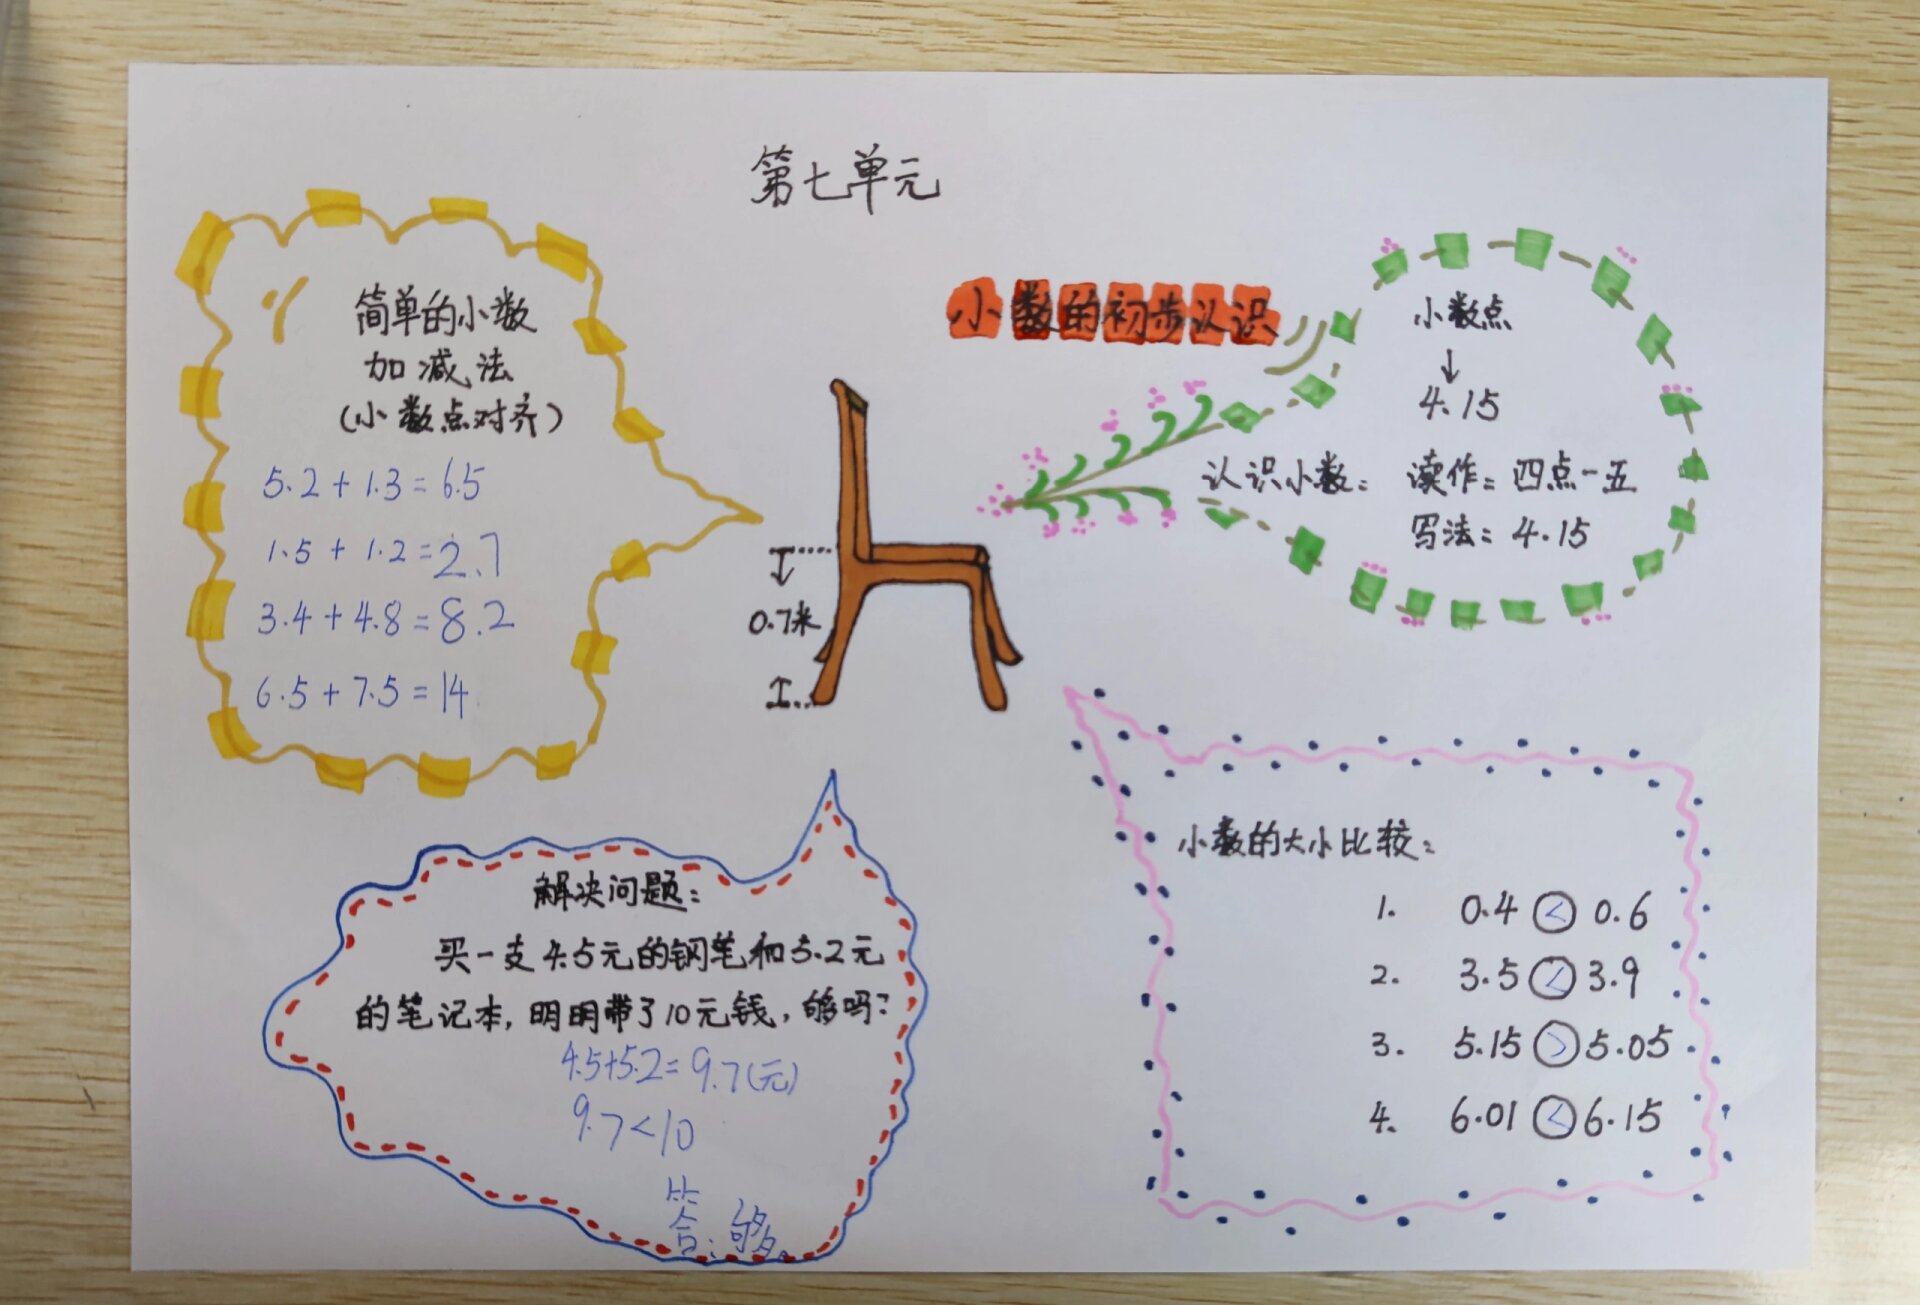 第七单元
简单的小数
加减法
(小数点对齐)
5.2+1.3=6.5
1.5+1.2=2.7
3.4+4.8=8.2
6.5+7.5=14
小数的初步认识
小数点
↓
4.15
认识小数: 读作: 四点一五
写法: 4.15
0.7米
解决问题:
买一支4.5元的钢笔和5.2元
的笔记本,明明带了10元钱,够吗?
4.5+5.2=9.7(元)
9.7<10
答:够。
小数的大小比较:
1. 0.4 < 0.6
2. 3.5 < 3.9
3. 5.15 > 5.05
4. 6.01 < 6.15